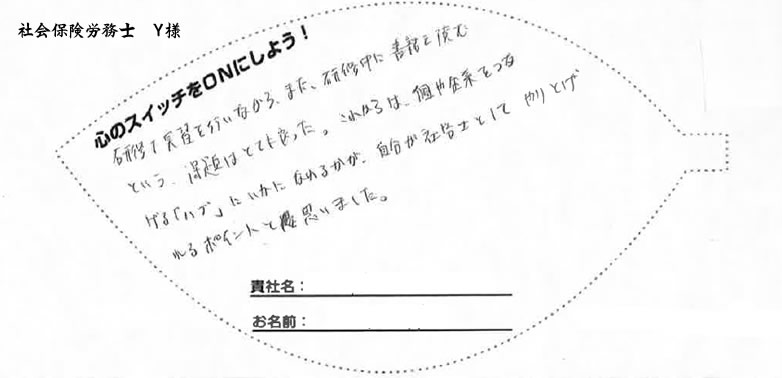 社会保険労務士　Y様
心のスイッチをONにしよう！
研修で実習を行いながら、また、研修中に書籍を読む
という、課題はとても良かった。これからは、個や企業をつな
げる「ハブ」にいかになれるかが、自分が社労士として やりとげ
れるポイントと思いました。
貴社名：
お名前：